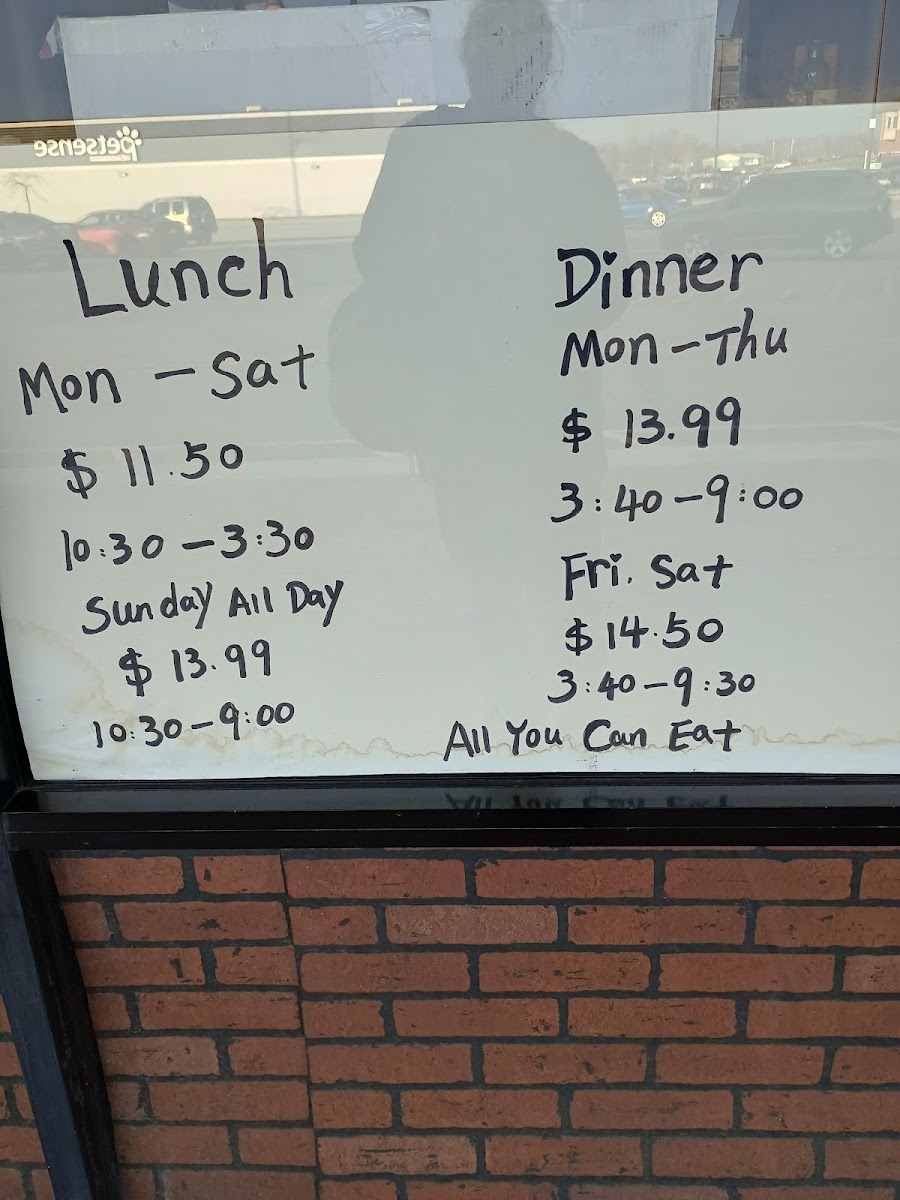 petsense
Lunch
Mon - Sat
$ 11.50
10:30 - 3:30
Sunday All Day
$ 13.99
10:30 - 9:00
Dinner
Mon - Thu
$ 13.99
3:40 - 9:00
Fri. Sat
$ 14.50
3:40 - 9:30
All You Can Eat